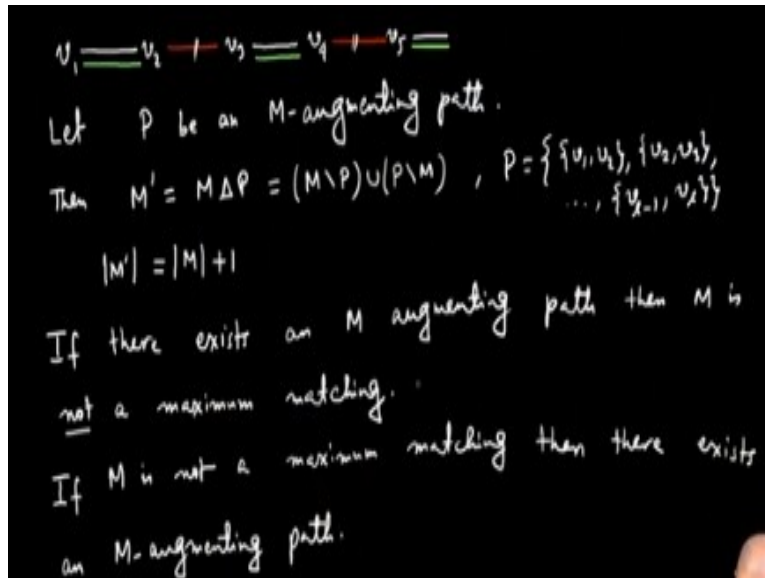 v₁ v₂ v₃ v₄ v₅
Let P be an M-augmenting path.
Then M' = M Δ P = (M \ P) ∪ (P \ M) , P = { {v₁, v₂}, {v₂, v₃},
..., {vₗ₋₁, vₗ}}
|M'| = |M| + 1
If there exists an M augmenting path then M is
not a maximum matching.
If M is not a maximum matching then there exists
an M-augmenting path.